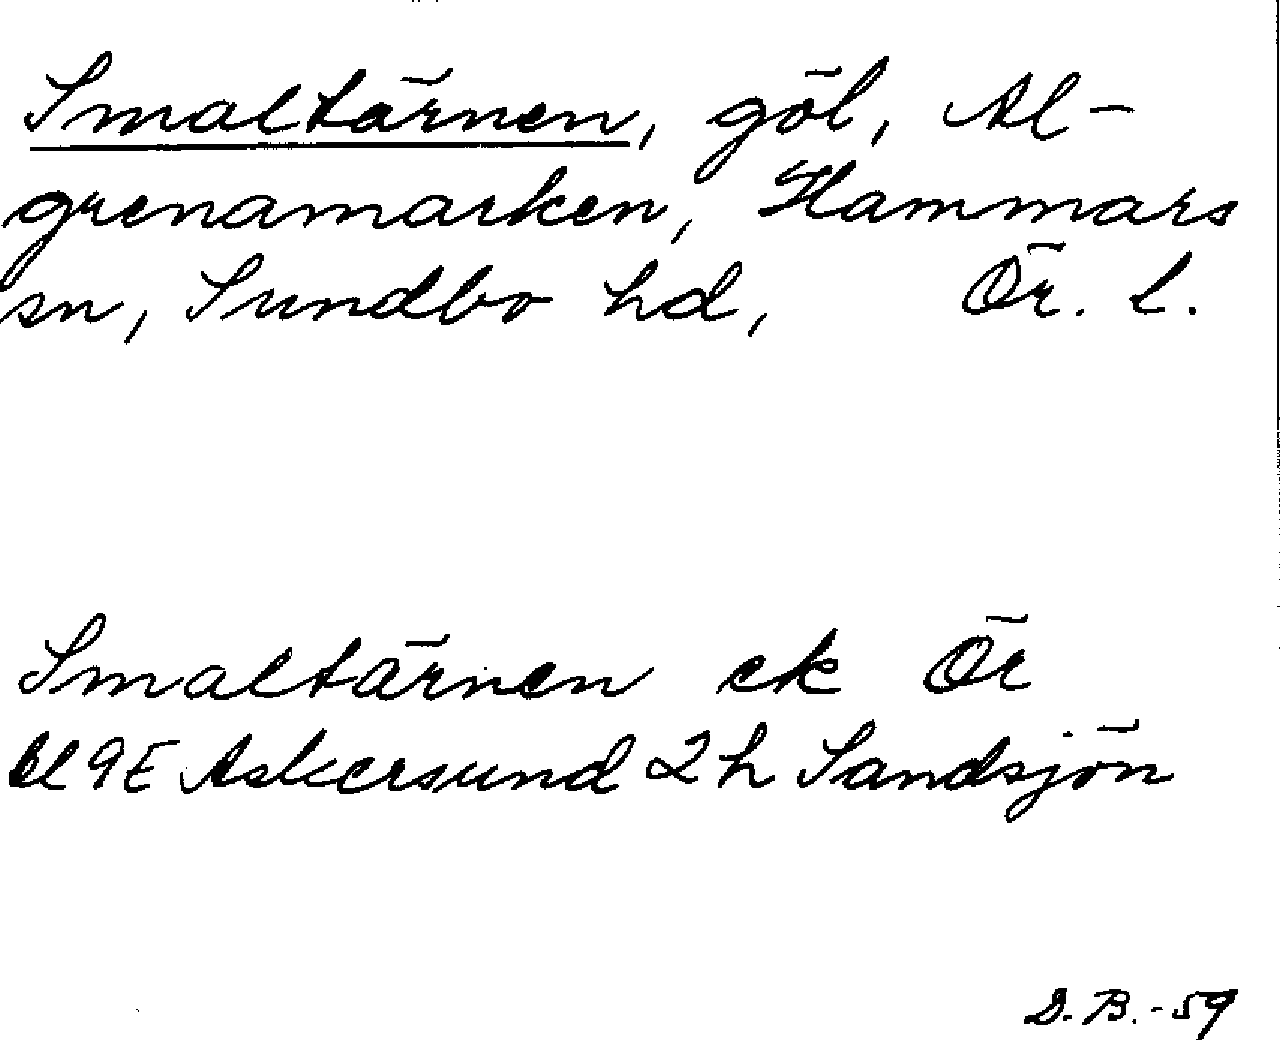 Smaltärnen, göl, Al-
grenamarken, Hammars
sn, Sundbo hd, Ör. l.
Smaltärnen ek Ör
Bl 9E Askersund 2h Sandsjön
D. B. -59